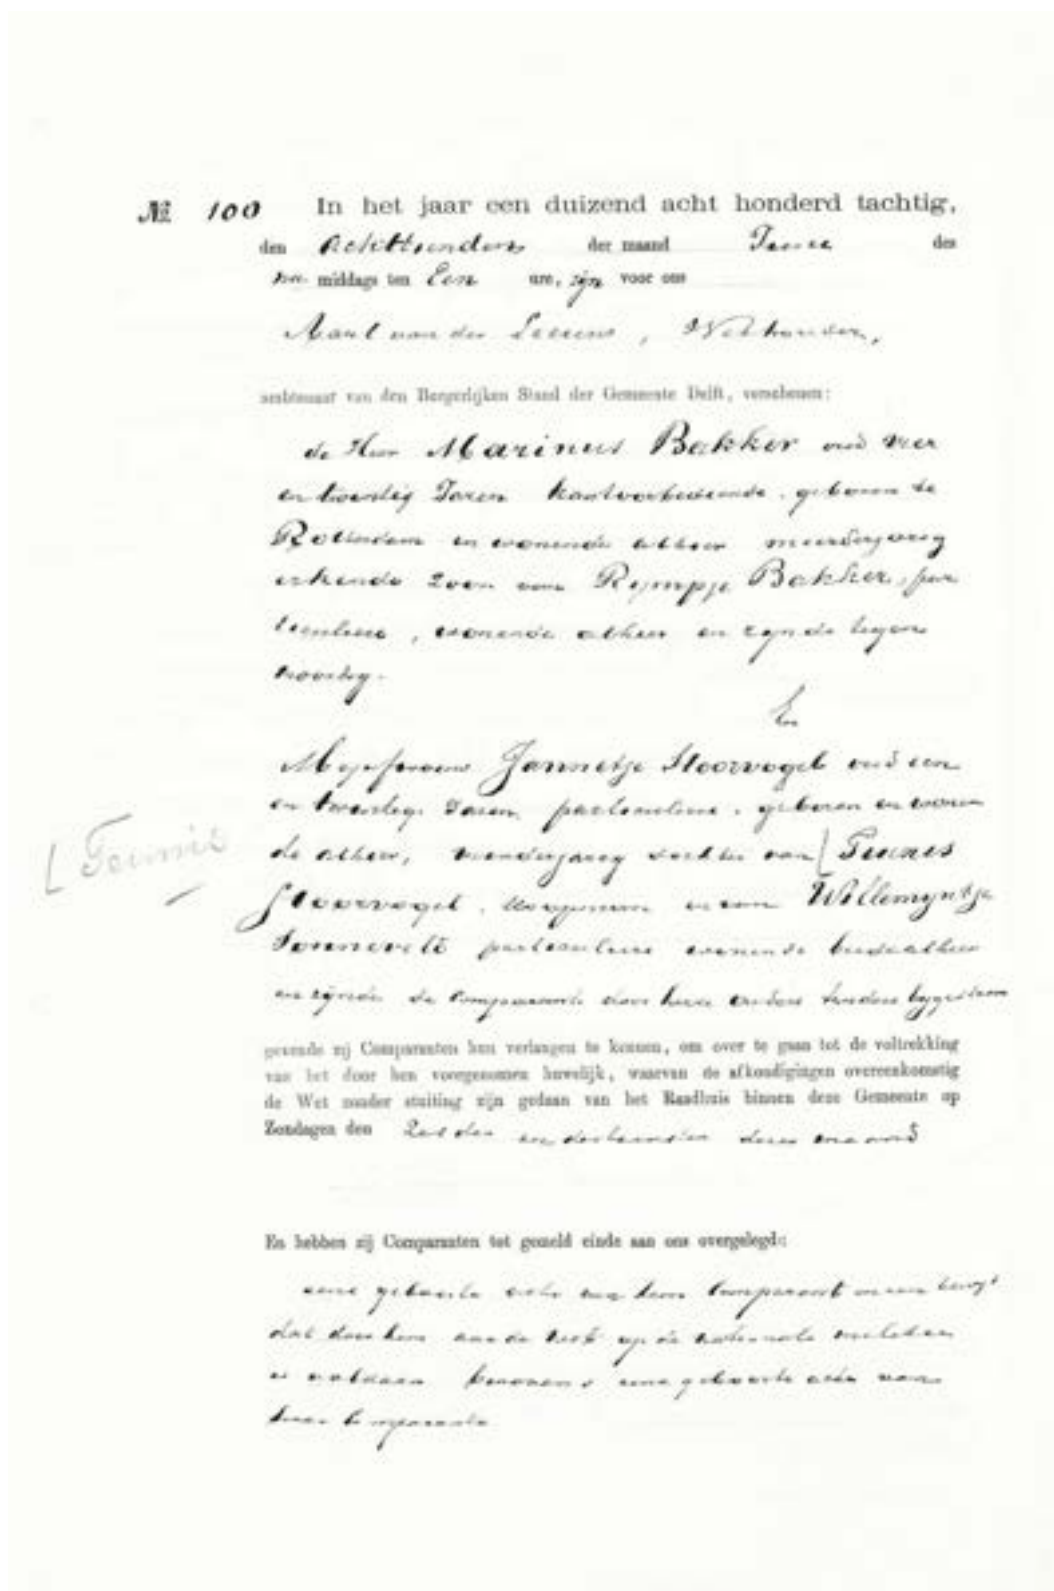 № 100 In het jaar een duizend acht honderd tachtig,
den Achttienden der maand Junie des
na middags ten Een ure, zijn voor ons
van der Leeuw, Wethouder,
ambtenaar van den Burgerlijken Stand der Gemeente Delft, verschenen:
de Heer Marinus Bakker oud vier
en twintig Jaren kantoorbediende, geboren te
Rotterdam en wonende alhier meerderjarig
erkende Zoon van Rympje Bakker, par
ticuliere, wonende alhier en zynde tegen
woordig.
En
Mejufvrouw Jannetje Stoorvogel oud een
en twintig Jaren, particuliere, geboren en wonen
de alhier, meerderjarig dochter van [ Teunis
[ Teunis
Stoorvogel, koopman en van Willemyntje
Sonneveld particuliere wonende beide alhier
en zynde de Comparante door hare ouders bygestaan
gevende zij Comparanten hun verlangen te kennen, om over te gaan tot de voltrekking
van het door hen voorgenomen huwelijk, waarvan de afkondigingen overeenkomstig
de Wet zonder stuiting zijn gedaan van het Raadhuis binnen deze Gemeente op
Zondagen den Zesden en dertienden dezer maand
En hebben zij Comparanten tot gezeld einde aan ons overgelegd:
eene geboorte acte van hem Comparant en een bewys
dat door hem aan de wet op de nationale militie
is voldaan benevens eene geboorte acte van
haar Comparante